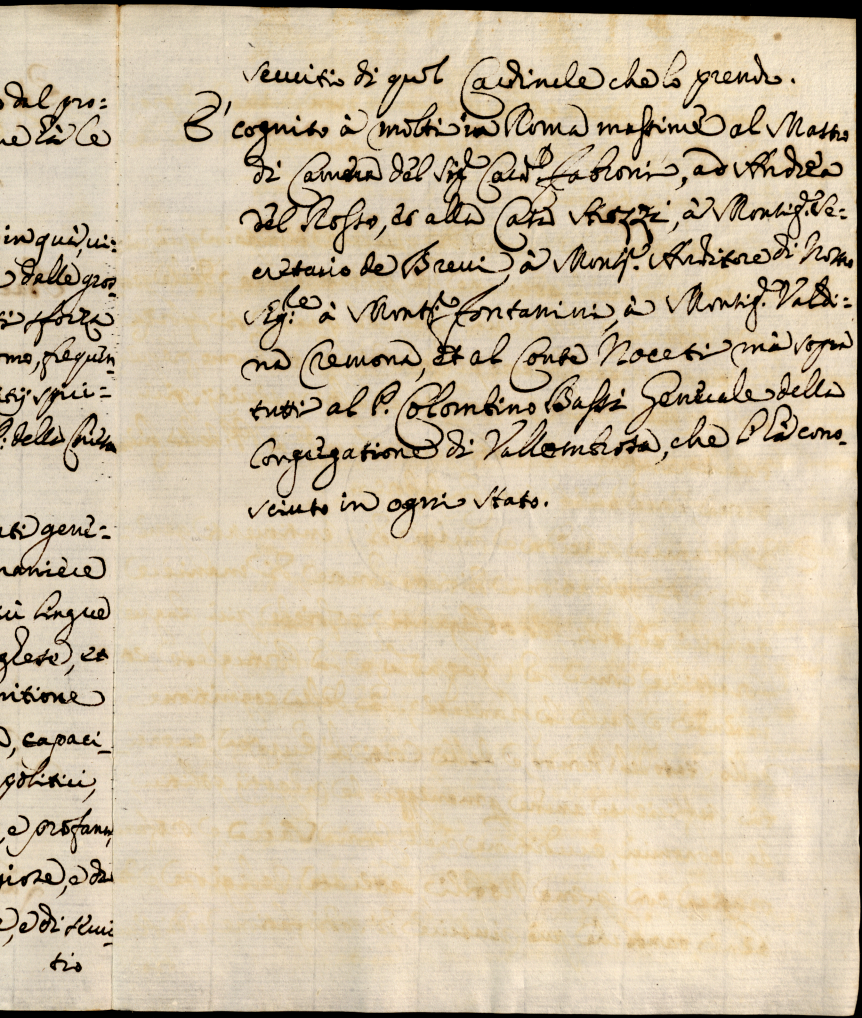 dal pro:
in qui, ui:
dalle gros:
sforza
omo, frequen:
spiri=
P. della Chiesa
ati gene=
maniere
lingue
glese, et
nitione
, capaci_
politici,
, e profani,
giose, e di
e, e di serui
tio
seruitio di quel Cardinale che lo prende.
E' cognito à molti in Roma massime al Mastro
di Camera del Sig.r Card.l Fabroni, ad Andrea
del Rosso, et alla Casa Strozzi, à Monsig.r Se-
cretario de Breui, à Mons.r Auditore di Nostro
Sig.re à Mons.r Fontanini, à Monsig.r Valdi=
na Cremona, et al Conte Noceti mà sopra
tutti al P. Colombino Bassi Generale della
Congregatione di Vallombrosa, che l'hà cono_
sciuto in ogni stato.